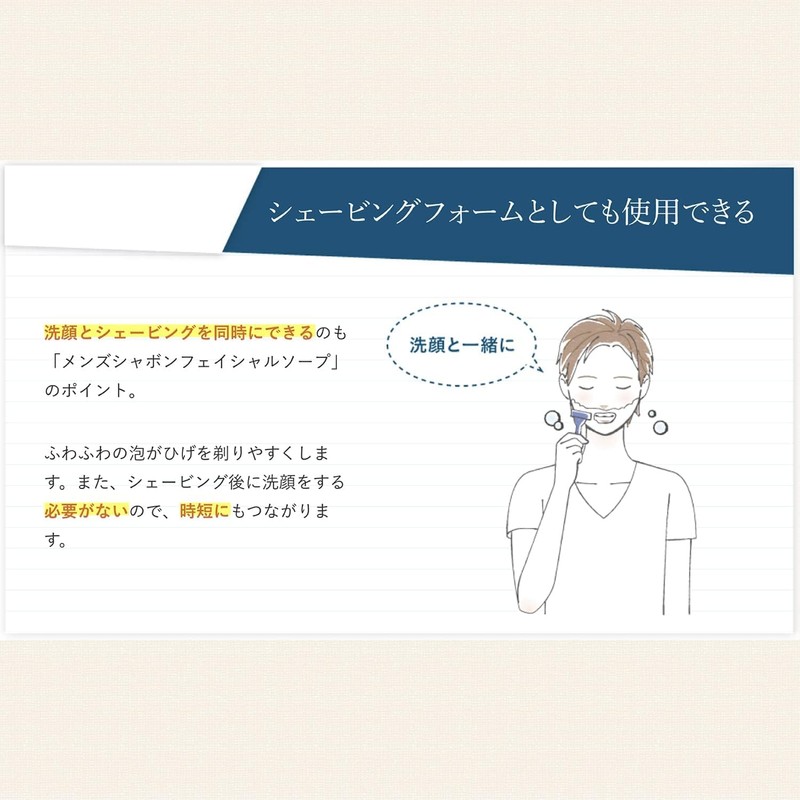 シェービングフォームとしても使用できる
洗顔とシェービングを同時にできるのも
「メンズシャボンフェイシャルソープ」
のポイント。
ふわふわの泡がひげを剃りやすくしま
す。また、シェービング後に洗顔をする
必要がないので、時短にもつながりま
す。
洗顔と一緒に